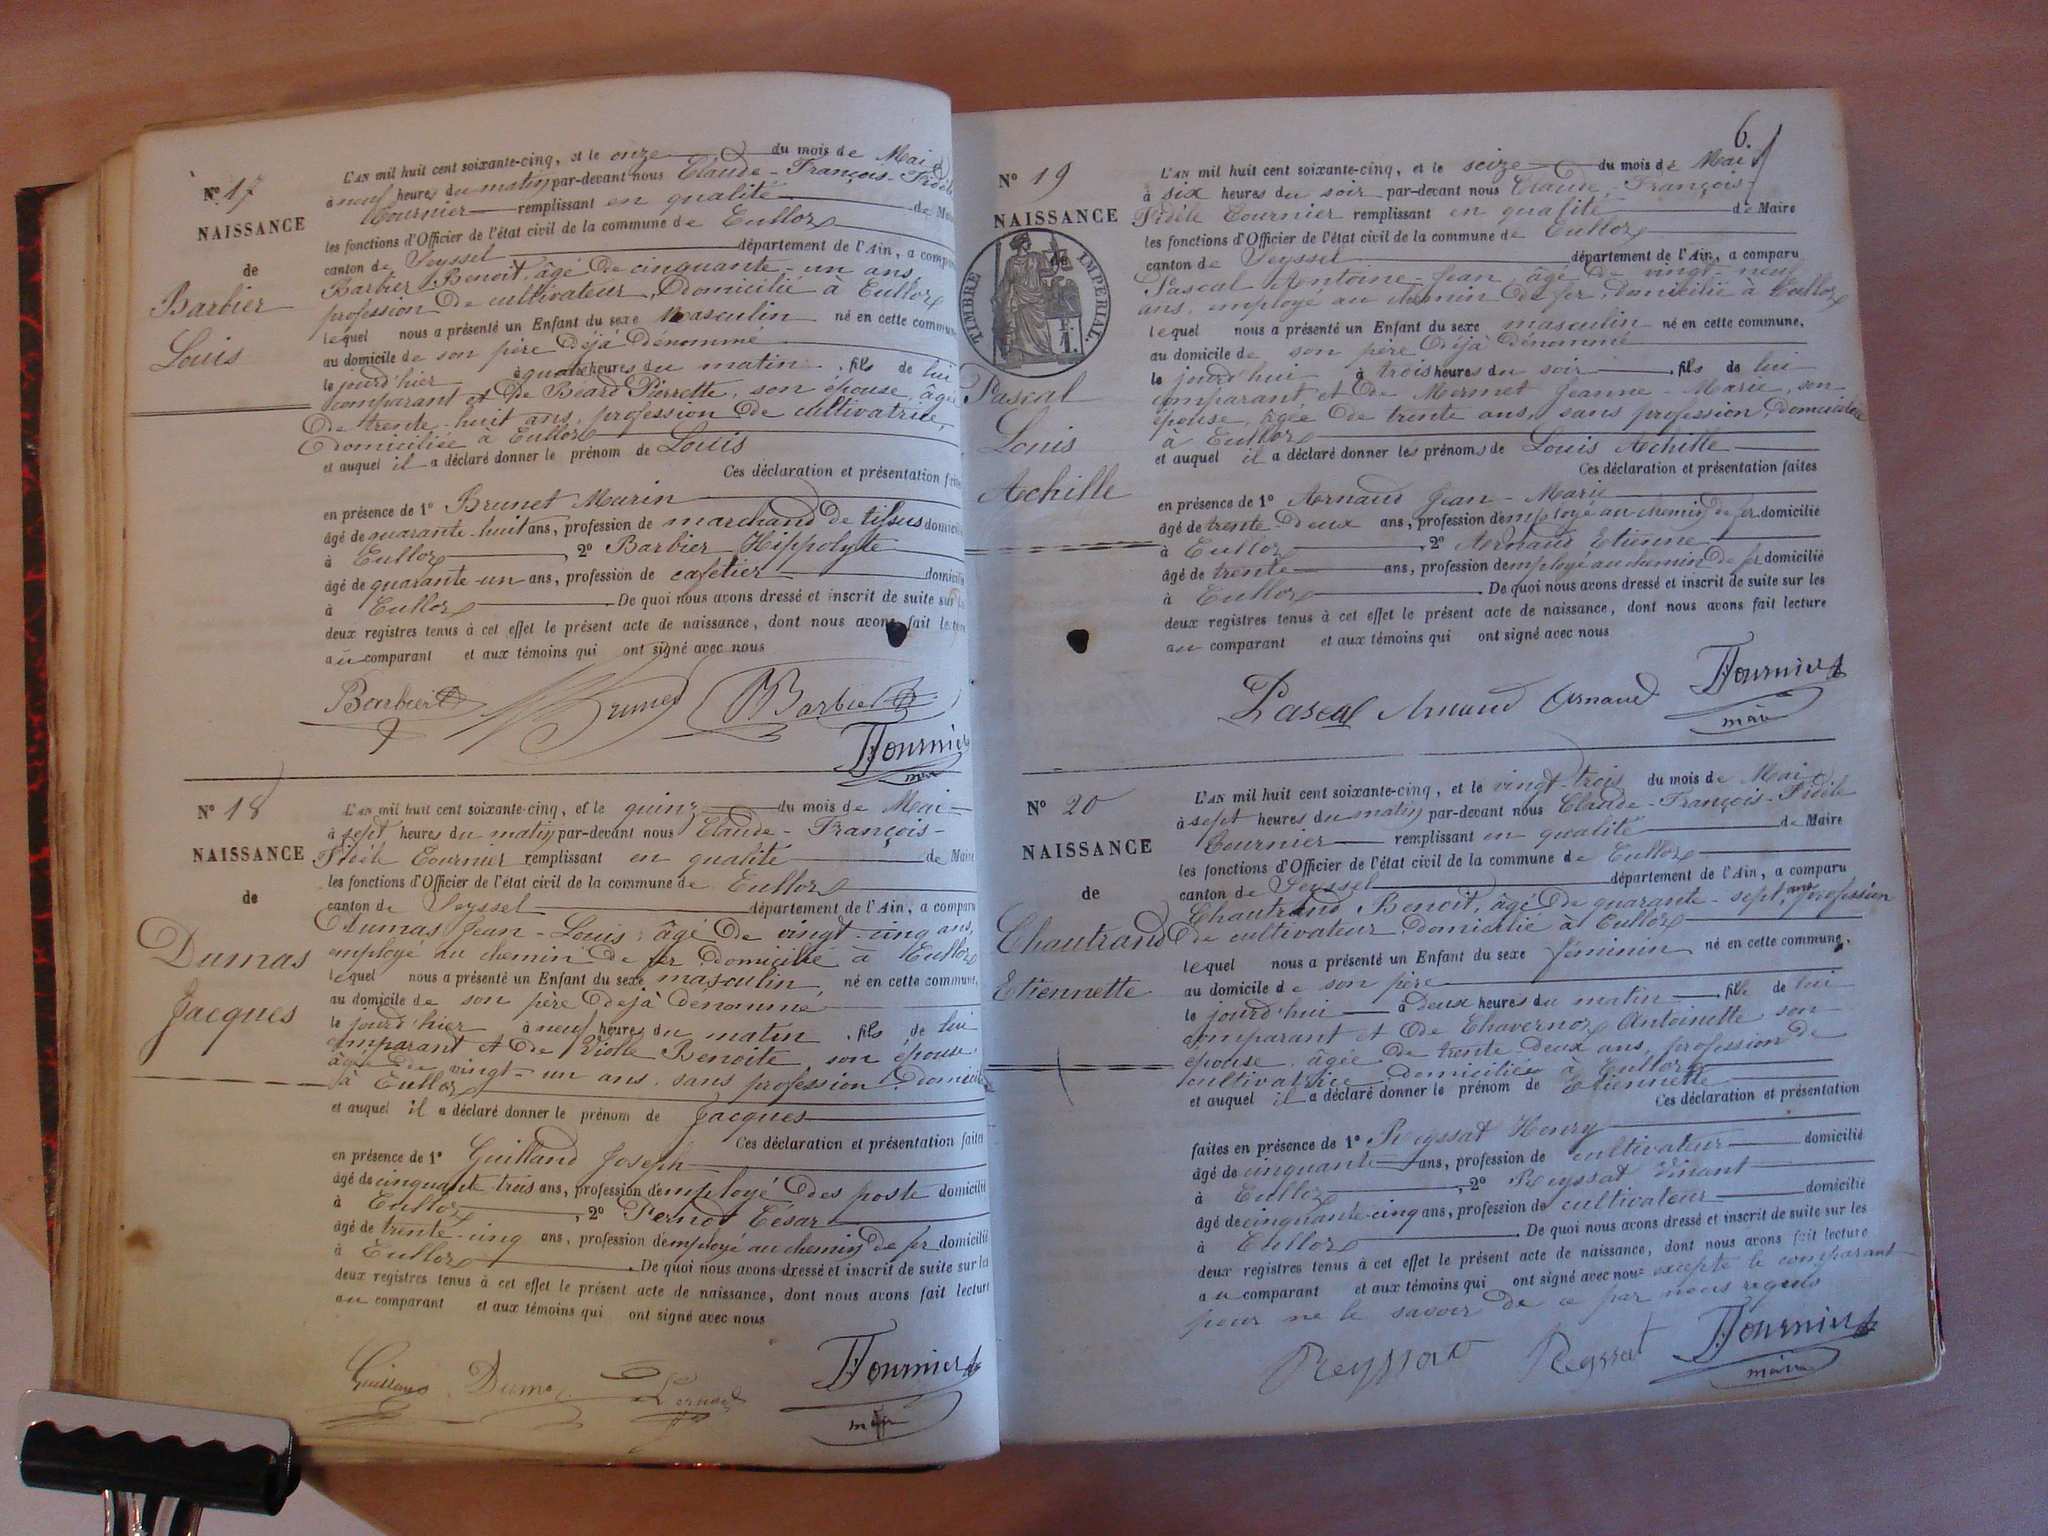 N° 17
NAISSANCE
de
Barbier
Louis
L'AN mil huit cent soixante-cinq, et le onze du mois de Mai
à neuf heures du matin par-devant nous Claude-François-Fidèle
Tournier remplissant en qualité de Maire
les fonctions d'Officier de l'état civil de la commune de Culloz
canton de Seyssel département de l'Ain, a comparu
Barbier Benoit, âgé de cinquante-un ans,
profession de cultivateur, domicilié à Culloz
lequel nous a présenté un Enfant du sexe masculin né en cette commune
au domicile de son père déjà dénommé
le jourd'hier à quatre heures du matin, fils de lui
comparant et de Béard Pierrette, son épouse, âgée
de trente-huit ans, profession de cultivatrice,
domiciliée à Culloz
et auquel il a déclaré donner le prénom de Louis
Ces déclaration et présentation faites
en présence de 1° Brunet Marin
âgé de quarante-huit ans, profession de marchand de tissus domicilié
à Culloz, 2° Barbier Hippolyte
âgé de quarante-un ans, profession de cafetier domicilié
à Culloz. De quoi nous avons dressé et inscrit de suite sur les
deux registres tenus à cet effet le présent acte de naissance, dont nous avons fait lecture
au comparant et aux témoins qui ont signé avec nous
Barbier Brunet Barbier
Tournier
maire
N° 18
NAISSANCE
de
Dumas
Jacques
L'AN mil huit cent soixante-cinq, et le quinz du mois de Mai
à sept heures du matin par-devant nous Claude-François-
Fidèle Tournier remplissant en qualité de Maire
les fonctions d'Officier de l'état civil de la commune de Culloz
canton de Seyssel département de l'Ain, a comparu
Dumas Jean-Louis, âgé de vingt-cinq ans,
employé au chemin de fer domicilié à Culloz
lequel nous a présenté un Enfant du sexe masculin, né en cette commune,
au domicile de son père déjà dénommé
le jourd'hier à neuf heures du matin, fils de lui
comparant et de Violle Benoite, son épouse,
âgée de vingt-un ans, sans profession, domiciliée
à Culloz
et auquel il a déclaré donner le prénom de Jacques
Ces déclaration et présentation faites
en présence de 1° Guilland Joseph
âgé de cinquante-trois ans, profession d'employé des poste domicilié
à Culloz, 2° Pernod César
âgé de trente-cinq ans, profession d'employé au chemin de fer domicilié
à Culloz. De quoi nous avons dressé et inscrit de suite sur les
deux registres tenus à cet effet le présent acte de naissance, dont nous avons fait lecture
au comparant et aux témoins qui ont signé avec nous
Guilland Dumas Pernod Tournier
maire
6.
N° 19
NAISSANCE
de
TIMBRE IMPERIAL
1 F.
Pascal
Louis
Achille
L'AN mil huit cent soixante-cinq, et le seize du mois de Mai
à six heures du soir par-devant nous Claude-François-
Fidèle Tournier remplissant en qualité de Maire
les fonctions d'Officier de l'état civil de la commune de Culloz
canton de Seyssel département de l'Ain, a comparu
Pascal Antoine-Jean, âgé de vingt-neuf
ans, employé au chemin de fer, domicilié à Culloz
lequel nous a présenté un Enfant du sexe masculin né en cette commune,
au domicile de son père déjà dénommé
le jourd'hui à trois heures du soir, fils de lui
comparant et de Mermet Jeanne-Marie, son
épouse, âgée de trente ans, sans profession, domiciliée
à Culloz
et auquel il a déclaré donner les prénoms de Louis Achille
Ces déclaration et présentation faites
en présence de 1° Arnaud Jean-Marie
âgé de trente-deux ans, profession d'employé au chemin de fer domicilié
à Culloz, 2° Arnaud Etienne
âgé de trente ans, profession d'employé au chemin de fer domicilié
à Culloz. De quoi nous avons dressé et inscrit de suite sur les
deux registres tenus à cet effet le présent acte de naissance, dont nous avons fait lecture
au comparant et aux témoins qui ont signé avec nous
Pascal Arnaud Arnaud Tournier
maire
N° 20
NAISSANCE
de
Chautrand
Etiennette
L'AN mil huit cent soixante-cinq, et le vingt-trois du mois de Mai
à sept heures du matin par-devant nous Claude-François-Fidèle
Tournier remplissant en qualité de Maire
les fonctions d'Officier de l'état civil de la commune de Culloz
canton de Seyssel département de l'Ain, a comparu
Chautrand Benoit, âgé de quarante-sept ans, profession
de cultivateur domicilié à Culloz
lequel nous a présenté un Enfant du sexe féminin né en cette commune,
au domicile de son père
le jourd'hui à deux heures du matin, fille de lui
comparant et de Chavernoz Antoinette son
épouse, âgée de trente-deux ans, profession de
cultivatrice domiciliée à Culloz
et auquel il a déclaré donner le prénom de Etiennette
Ces déclaration et présentation
faites en présence de 1° Reyssat Henry
âgé de cinquante ans, profession de cultivateur domicilié
à Culloz, 2° Reyssat Vinant
âgé de cinquante-cinq ans, profession de cultivateur domicilié
à Culloz. De quoi nous avons dressé et inscrit de suite sur les
deux registres tenus à cet effet le présent acte de naissance, dont nous avons fait lecture
au comparant et aux témoins qui ont signé avec nous excepté le comparant
pour ne le savoir de ce par nous requis
Reyssat Reyssat Tournier
maire